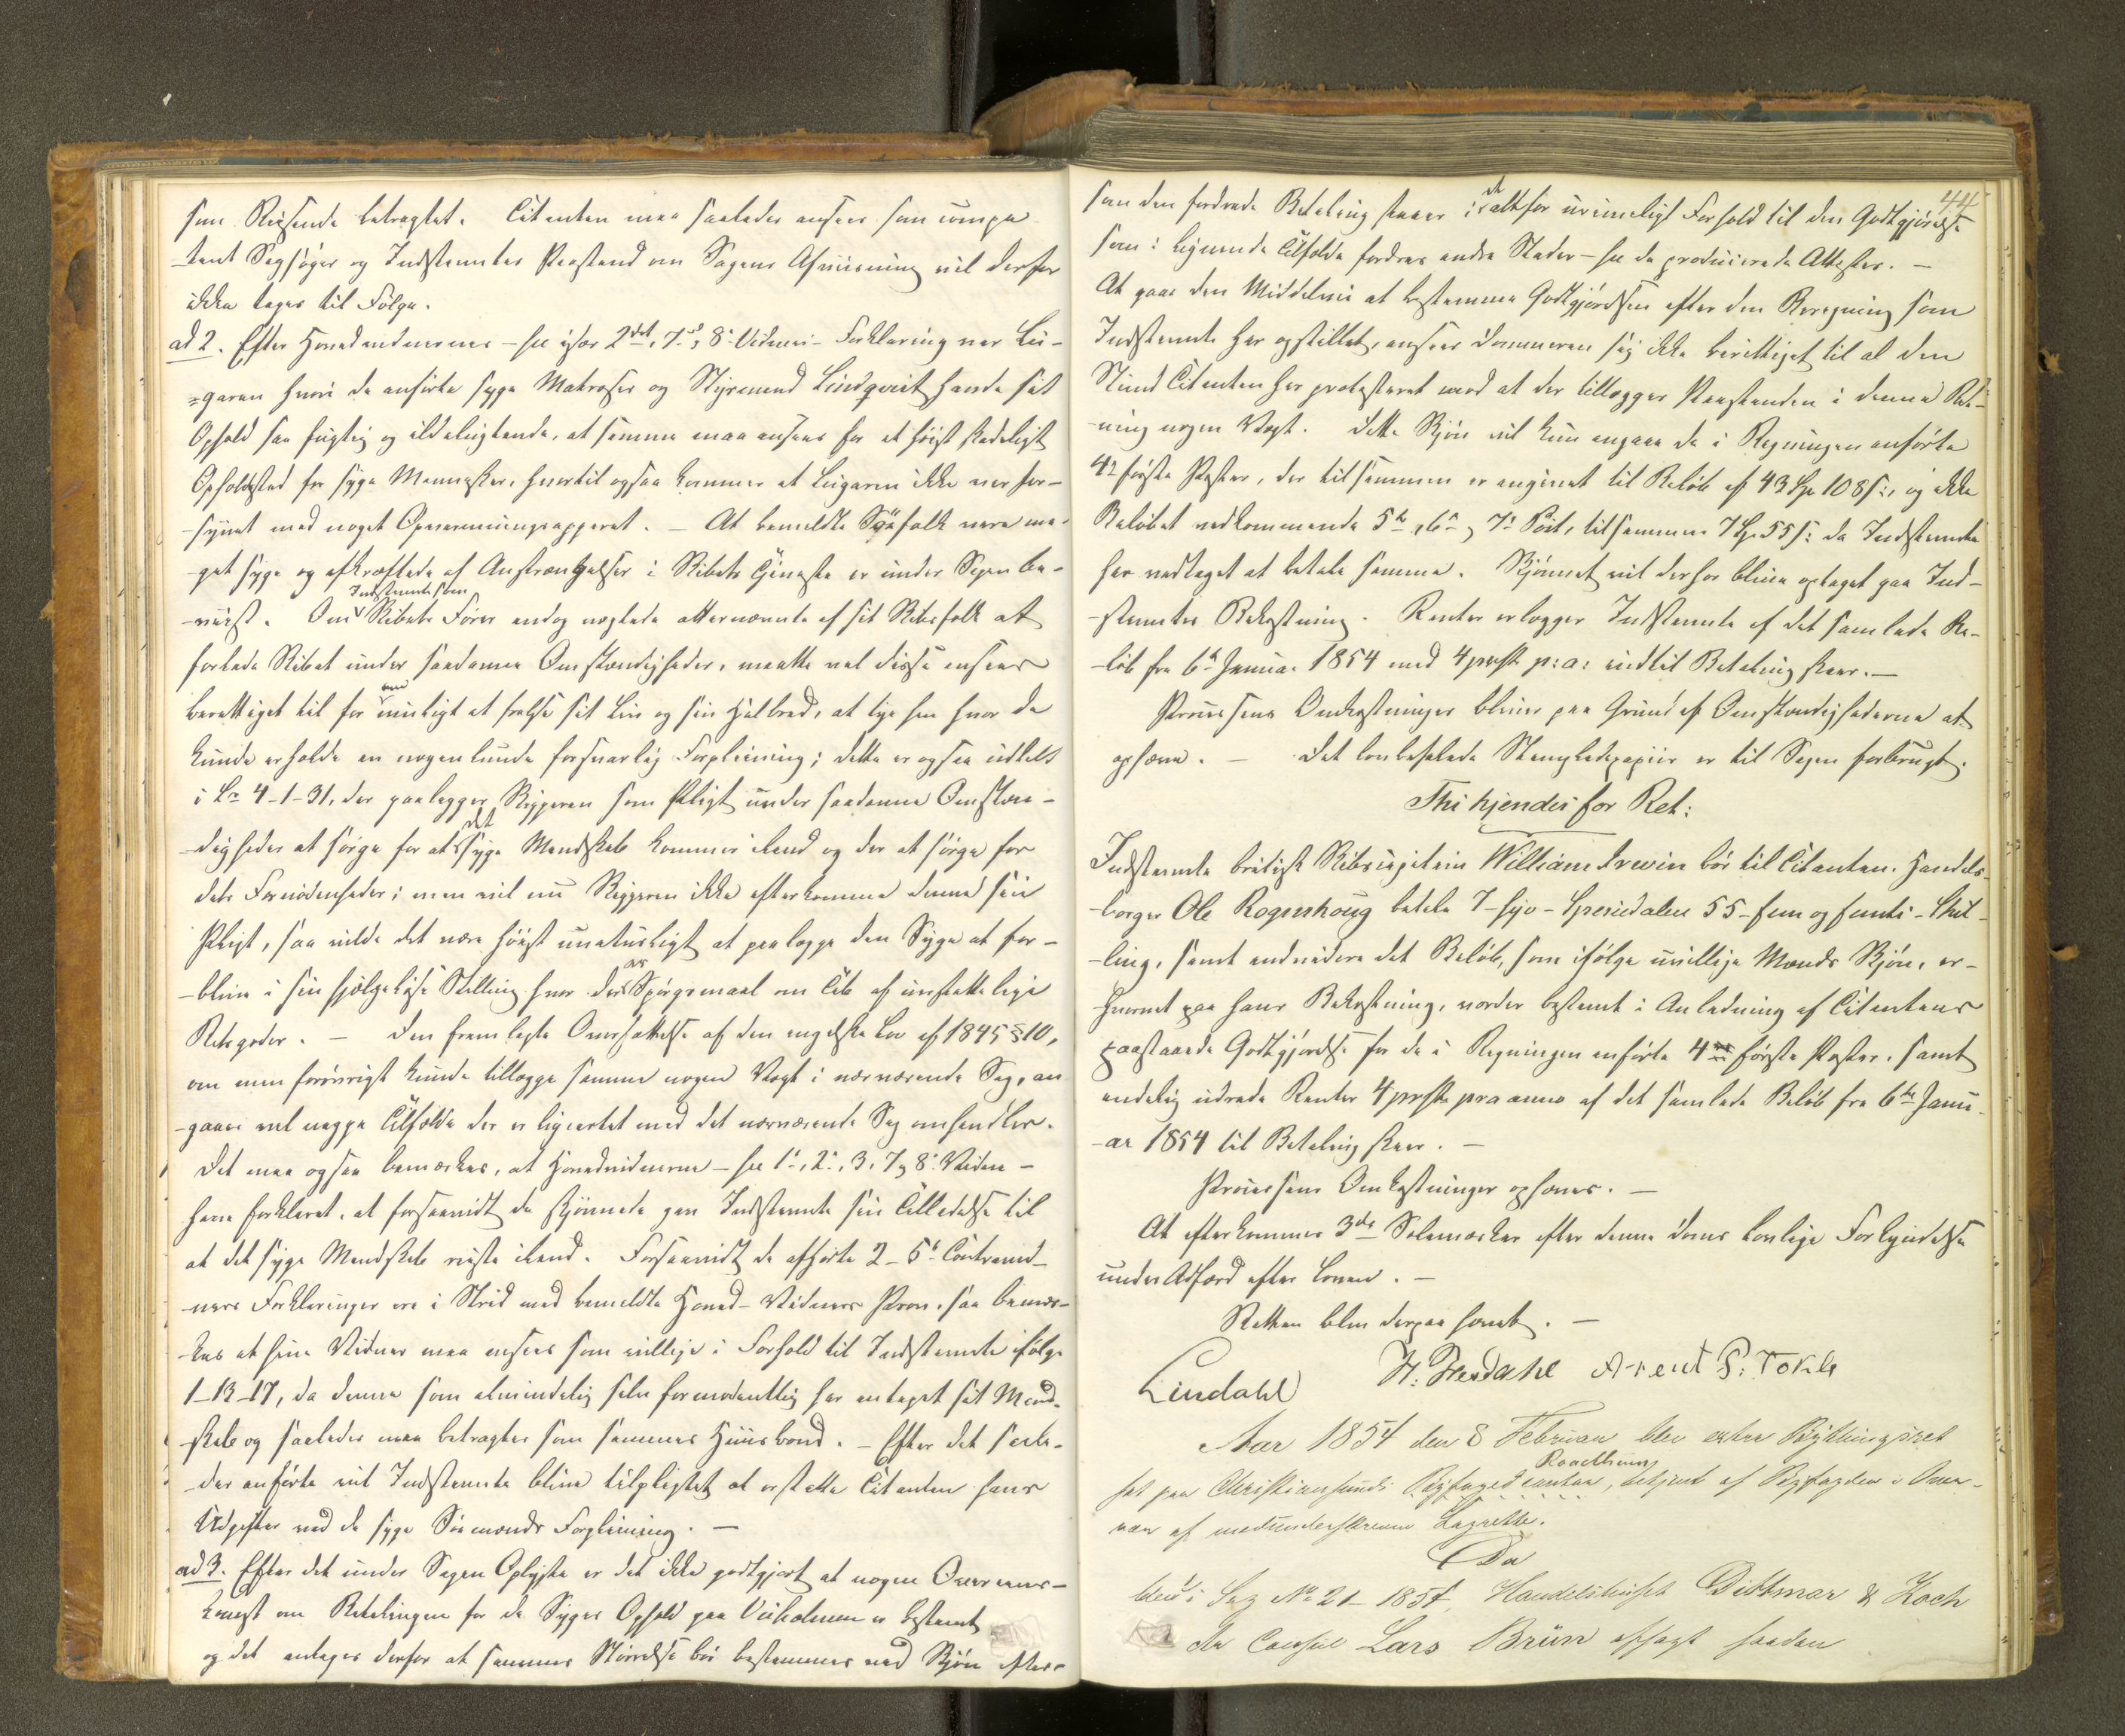 som Reisende betragtet. Citanten maa saaledes ansees som compe
tent Sagsøger og Indstevntes Paastand om Sagens Afviisning vil derfor
ikke tages til Følge.
ad 2. Efter Hovedvidnernes – see især 2det, 7de, 8de Vidnes – Forklaring var Lu-
garen hvori de anførte syge Matroser og Styrmand Lindqvist havde sit
Ophold saa fugtig og ildelugtende, at samme maa ansees for et høist skadeligt
Opholdssted for syge Mennesker, hvortil ogsaa kommer at Lugaren ikke var for-
-synet med noget Opvarmningsapparat. – At bemeldte Søefolk vare me-
get syge og afkræftede af Anstrængelser i Skibets Tjeneste er under Sagen be-
-viist. Om Indstevnte som Skibets Fører endog negtede ovennævnte af sit Skibsfolk at
forlade Skibet under saadanne Omstændigheder, maatte vel disse ansees
berettiget til for om muligt at frelse sit Liv og sin Helbred, at tye hen hvor de
kunde erholde en nogenlunde forsvarlig Forpleining; dette er ogsaa udtalt
i L: 4-1-31, der paalegger Skipperen som Pligt under saadanne Omstæn-
digheder at sørge for at det syge Mandskab kommer iland og der at sørge for
dets Fornødenheder; men vil nu Skipperen ikke efterkomme denne sin
Pligt, saa vilde det være høist unaturligt at paalægge den Syge at for-
-blive i sin hjælpeløse Stilling hvor der er Spørgsmaal om Tab af uerstattelige
Retsgoder. – Den fremlagte Oversættelse af den engelske Lov af 1845 § 10,
om man forøvrigt kunde tillægge samme nogen Vægt i nærværende Sag, an
-gaaer vel neppe Tilfælde der er ligeartet med det nærværende Sag omhandler.
Det maa ogsaa bemærkes, at Hovedvidnerne – see 1de, 2de, 3, 7 og 8de Vidne –
have forklaret, at forsaavidt de skjønnede gav Indstevnte sin Tilladelse til
at det syge Mandskab reiste iland. Forsaavidt de afhørte 2 – 5te Contravid-
ners Forklaringer ere i Strid med bemeldte Hoved-Vidners Prov, saa bemær-
kes at hine Vidner maa ansees som villige i Forhold til Indstevnte ifølge
1-13-17, da denne som almindelig selv formodentlig har antaget sit Mand-
skab og saaledes maa betragtes som sammes Huusbond. – Efter det saale-
des anførte vil Indstevnte blive tilpligtet at erstatte Citanten hans
Udgifter ved de syge Sømænds Forpleining. –
ad 3. Efter det under Sagen Oplyste er det ikke godtgjort at nogen Overeens-
komst om Betalingen for de Syges Ophold paa Veiholmen er bestemt
og det antages derfor at sammes Størrelse bør bestemmes ved Skjøn efter-
44
som den fordrede Betaling staaer i et altfor urimeligt Forhold til den Godtgjørelse
som i lignende Tilfælde fordres andre Steder – see de producerede Attester. –
At gaae den Middelvei at bestemme Godtgjørelsen efter den Beregning som
Indstevnte har opstillet, anseer Dommeren sig ikke berettiget til al den
Stund Citanten har protesteret mod at der tillægges Paastanden i denne Ret-
ning nogen Vægt. Dette Skjøn vil kun angaae de i Regningen anførte
4re første Poster, der tilsammen er angivet til Beløb af 43 Sp 108 s:, og ikke
Beløbet vedkommende 5te, 6te og 7de Post, tilsammen 7 Sp 55 s: da Indstevnte
har vedtaget at betale samme. Skjønnet vil derfor blive optaget paa Ind-
-stevntes Bekostning. Renter erlægger Indstevnte af det samlede Be-
-løb fra 6te Januar 1854 med 4 procent p: a: indtil Betaling skeer. –
Processens Omkostninger bliver paa Grund af Omstændighederne at
ophæve. – Det lovbefalede Stempledepapiir er til Sagen forbrugt.
Thi kjendes for Ret:
Indstevnte britisk Skibscapitain William Irewin bør til Citanten, Handels-
-borger Ole Rognskoug betale 7 – syv – Speciedaler 55 – fem og femti – Skil-
-ling, samt endvidere det Beløb, som ifølge uvillige Mænds Skjøn, er-
hvervet paa hans Bekostning, vorder bestemt i Anledning af Citantens
paastaaede Godtgjørelse for de i Regningen anførte 4re første Poster, samt
endelig udrede Renter 4 procent pro anno af det samlede Beløb fra 6te Janu-
-ar 1854 til Betaling skeer. –
Processens Omkostninger ophæves. –
At efterkommes 3de Solemærker efter denne Doms lovlige Forkyndelse
under Adfærd efter Loven. –
Retten blev derpaa hævet. –
Lindahl H. Stendahl Arent P: Tokle
Aar 1854 den 8 Februar blev extra Bythingsret
sat paa Christiansunds Raadhuus, betjent af Byfogden i Over-
vær af medunderskrevne Lagrette.
Da
blev i Sag No 21 – 1854, Handelshuset Dittmar & Koch
ctr Consul Lars Brün afsagt saadan